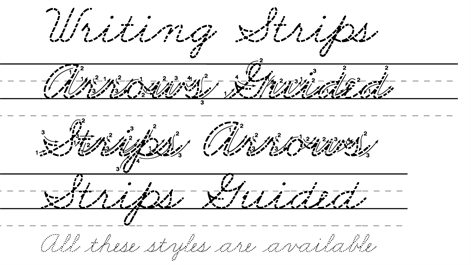 Writing Strips
Arrows Guided
Strips Arrows
Strips Guided
All these styles are available